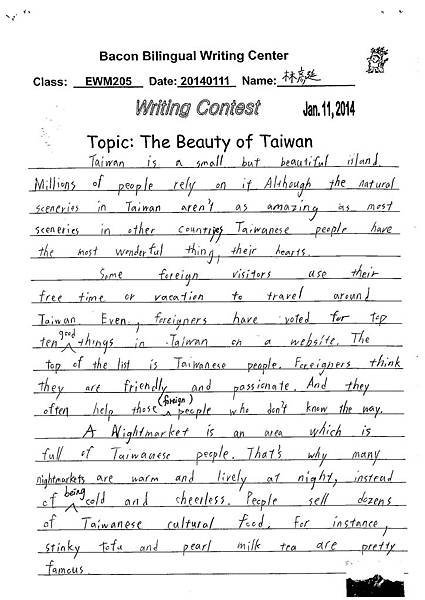 Bacon Bilingual Writing Center
Class: EWM205 Date: 20140111 Name: 林彥廷
Writing Contest Jan. 11, 2014
Topic: The Beauty of Taiwan
Taiwan is a small but beautiful island.
Millions of people rely on it. Although the natural
sceneries in Taiwan aren't as amazing as most
sceneries in other countries, Taiwanese people have
the most wonderful thing, their hearts.
Some foreign visitors use their
free time or vacation to travel around
Taiwan. Even, foreigners have voted for top
ten good things in Taiwan on a website. The
top of the list is Taiwanese people. Foreigners think
they are friendly and passionate. And they
often help those (foreign) people who don't know the way.
A Nightmarket is an area which is
full of Taiwanese people. That's why many
nightmarkets are warm and lively at night, instead
of being cold and cheerless. People sell dozens
of Taiwanese cultural food. For instance,
stinky tofu and pearl milk tea are pretty
famous.